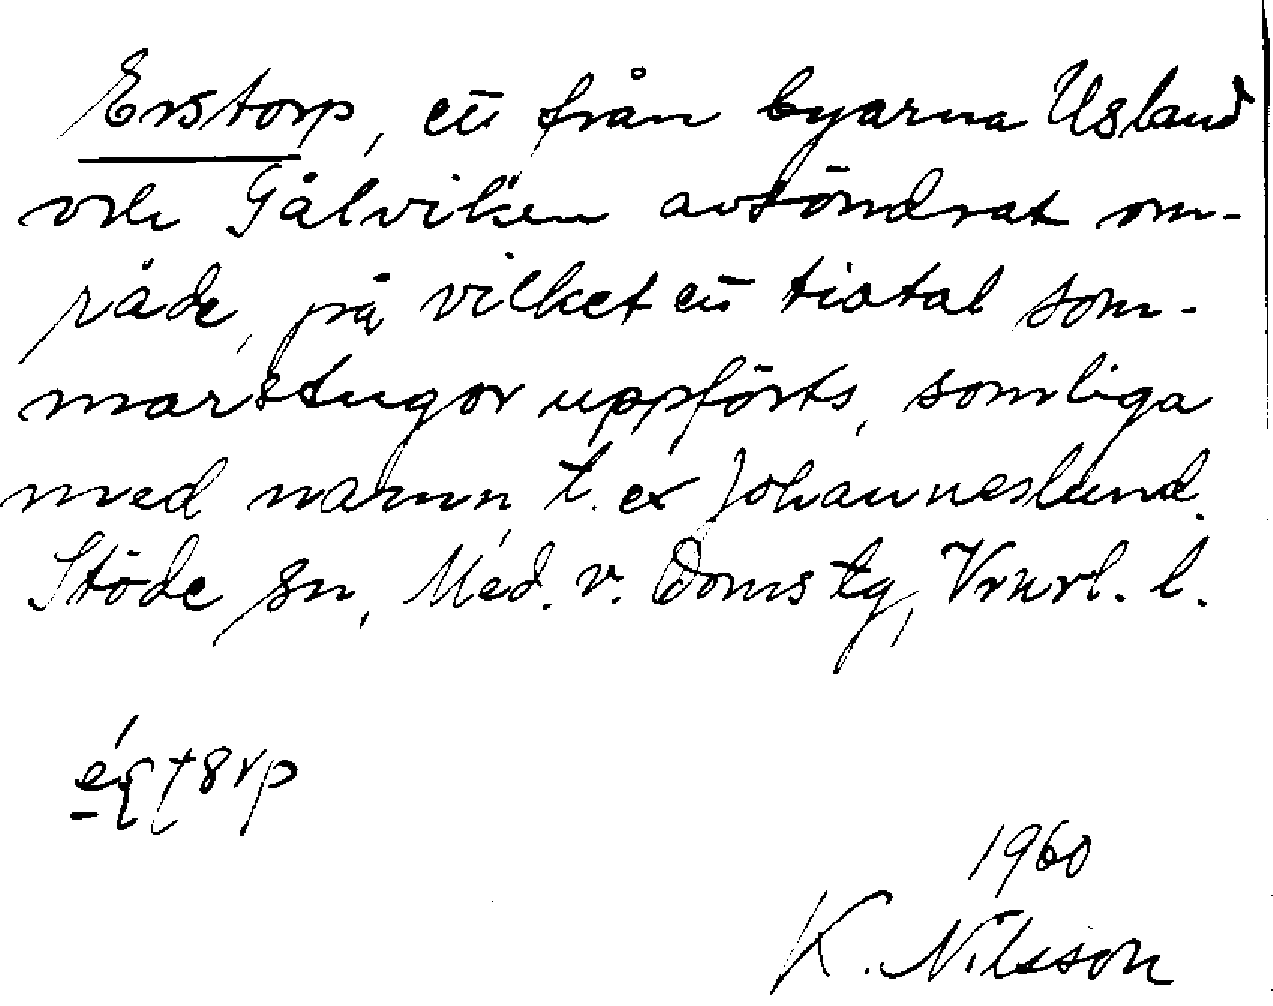 Erstorp, ett från byarna Usland
och Gålviken avsöndrat om-
råde, på vilket ett tiotal som-
marstugor uppförts, somliga
med namn, t. ex Johanneslund.
Stöde sn, Med. v. Domstg, Vrnrl. l.
1960
K. Nilsson